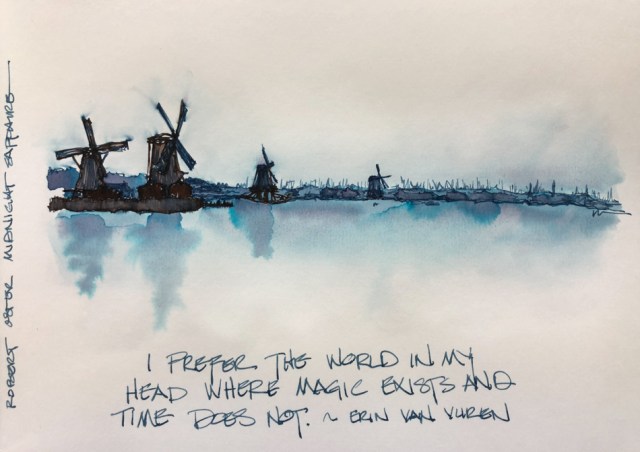 ROBERT OSTER MIDNIGHT SAPPHIRE
I PREFER THE WORLD IN MY
HEAD WHERE MAGIC EXISTS AND
TIME DOES NOT. ~ ERIN VAN VUREN